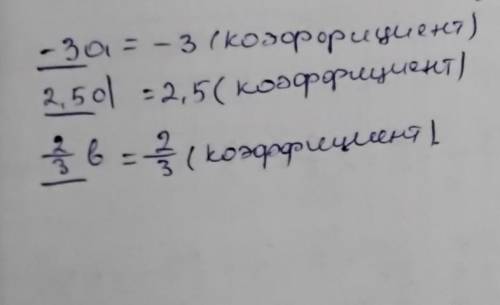 -3a = -3 (коэффорициент)
2,5d = 2,5 (коэффициент)
2/3 b = 2/3 (коэффициент)